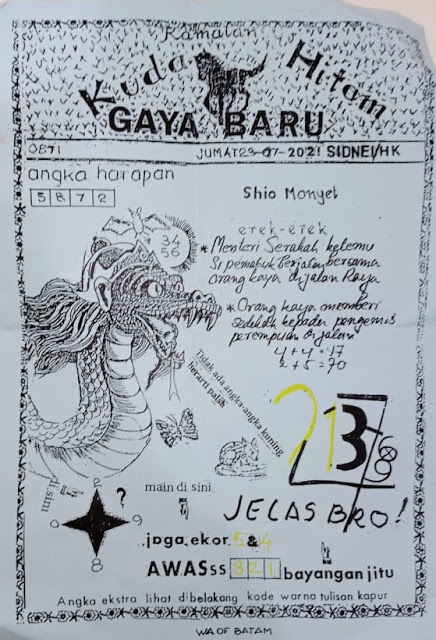 Ramalan
Kuda Hitam
GAYA BARU
0871
JUMAT 29-07-2021 SIDNEI/HK
angka harapan
5 8 7 2
Shio Monyet
erek-erek
34
56
* Menteri Serakah ketemu
Si pemabuk berjalan bersama
Orang kaya di jalan Raya
* Orang kaya memberi
sedekah kepada pengemis
perempuan di jalan
4+4=17
2+5=70
Tidak ada angka-angka kuning
berarti palsu
213
68
di sini
2
?
9
8
main di sini
JELAS BRO!
jaga ekor 5&4
AWASss 321 bayangan jitu
Angka ekstra lihat dibelakang kode warna tulisan kapur
WA OF BATAM